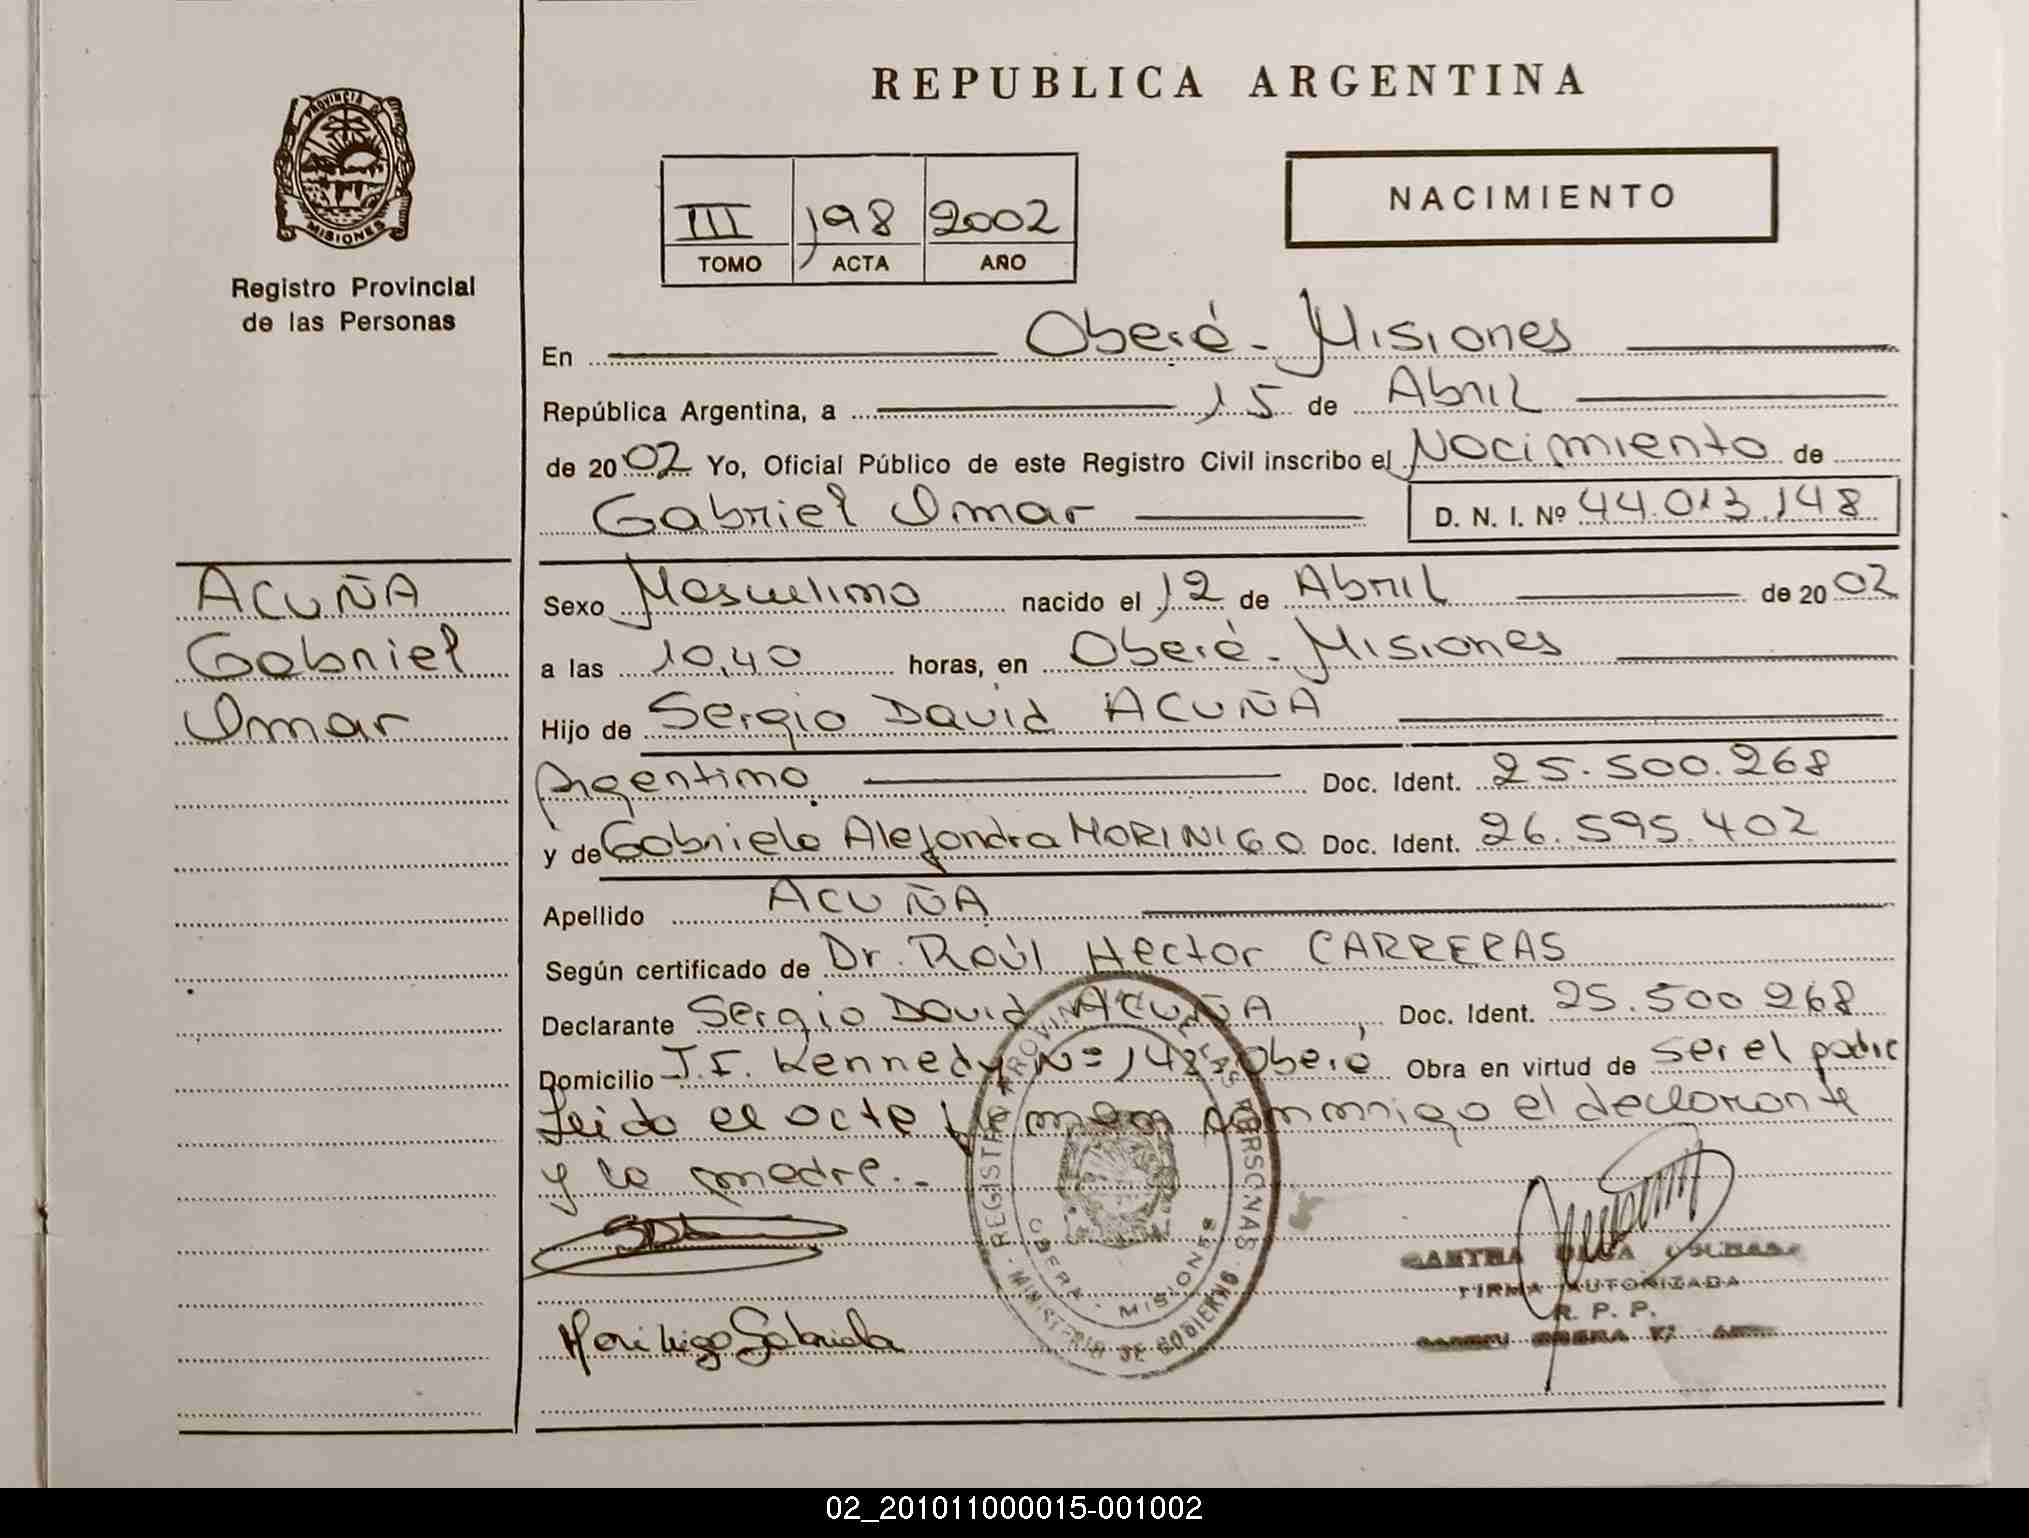 REPUBLICA ARGENTINA
PROVINCIA DE
MISIONES
Registro Provincial
de las Personas
III 198 2002
TOMO ACTA AÑO
NACIMIENTO
En Oberá - Misiones
República Argentina, a 15 de Abril
de 2002 Yo, Oficial Público de este Registro Civil inscribo el Nacimiento de
Gabriel Omar D. N. I. Nº 44.013.148
ACUÑA
Gabriel
Omar
Sexo Masculino nacido el 12 de Abril de 2002
a las 10,40 horas, en Oberá - Misiones
Hijo de Sergio David ACUÑA
Argentino Doc. Ident. 25.500.268
y de Gabriela Alejandra MORINIGO Doc. Ident. 26.595.402
Apellido ACUÑA
Según certificado de Dr. Raúl Hector CARRERAS
Declarante Sergio David ACUÑA, Doc. Ident. 25.500.268
Domicilio J.F. Kennedy Nº Oberá Obra en virtud de ser el padre
Leido el acta firman conmigo el declarante
y la madre.-
REGISTRO PROVINCIAL DE LAS PERSONAS
MINISTERIO DE GOBIERNO
OBERA - MISIONES
Morinigo Gabriela
FIRMA AUTORIZADA
R. P. P.
02_201011000015-001002